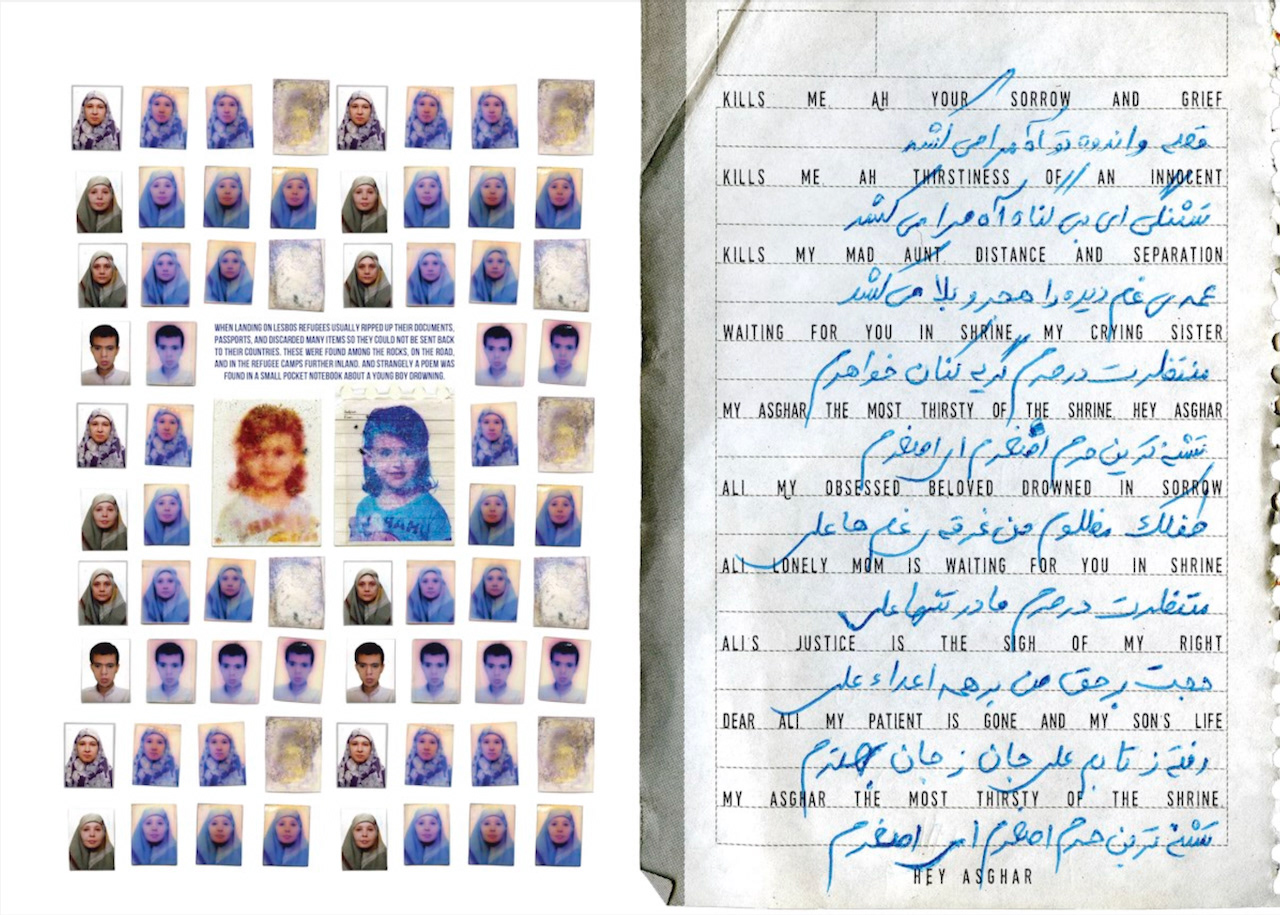 WHEN LANDING ON LESBOS REFUGEES USUALLY RIPPED UP THEIR DOCUMENTS,
PASSPORTS, AND DISCARDED MANY ITEMS SO THEY COULD NOT BE SENT BACK
TO THEIR COUNTRIES. THESE WERE FOUND AMONG THE ROCKS, ON THE ROAD,
AND IN THE REFUGEE CAMPS FURTHER INLAND. AND STRANGELY A POEM WAS
FOUND IN A SMALL POCKET NOTEBOOK ABOUT A YOUNG BOY DROWNING.
KILLS ME AH YOUR SORROW AND GRIEF
قصه و اندوه تو آه مرا می کشد
KILLS ME AH THIRSTINESS OF AN INNOCENT
تشنگی ای بی گناه آه مرا می کشد
KILLS MY MAD AUNT DISTANCE AND SEPARATION
عمه ی غم دیده را هجر و بلا می کشد
WAITING FOR YOU IN SHRINE MY CRYING SISTER
منتظرت در حرم گریه کنان خواهرم
MY ASGHAR THE MOST THIRSTY OF THE SHRINE HEY ASGHAR
تشنه ترین حرم اصغرم ای اصغرم
ALI MY OBSESSED BELOVED DROWNED IN SORROW
طفلک مظلوم من غرقه ی غم ها علی
ALI LONELY MOM IS WAITING FOR YOU IN SHRINE
منتظرت در حرم مادر تنها علی
ALI'S JUSTICE IS THE SIGH OF MY RIGHT
حجت بر حق من بر همه اعداء علی
DEAR ALI MY PATIENT IS GONE AND MY SON'S LIFE
رفته ز تابم علی جان ز جان
MY ASGHAR THE MOST THIRSTY OF THE SHRINE
تشنه ترین حرم اصغرم ای اصغرم
HEY ASGHAR